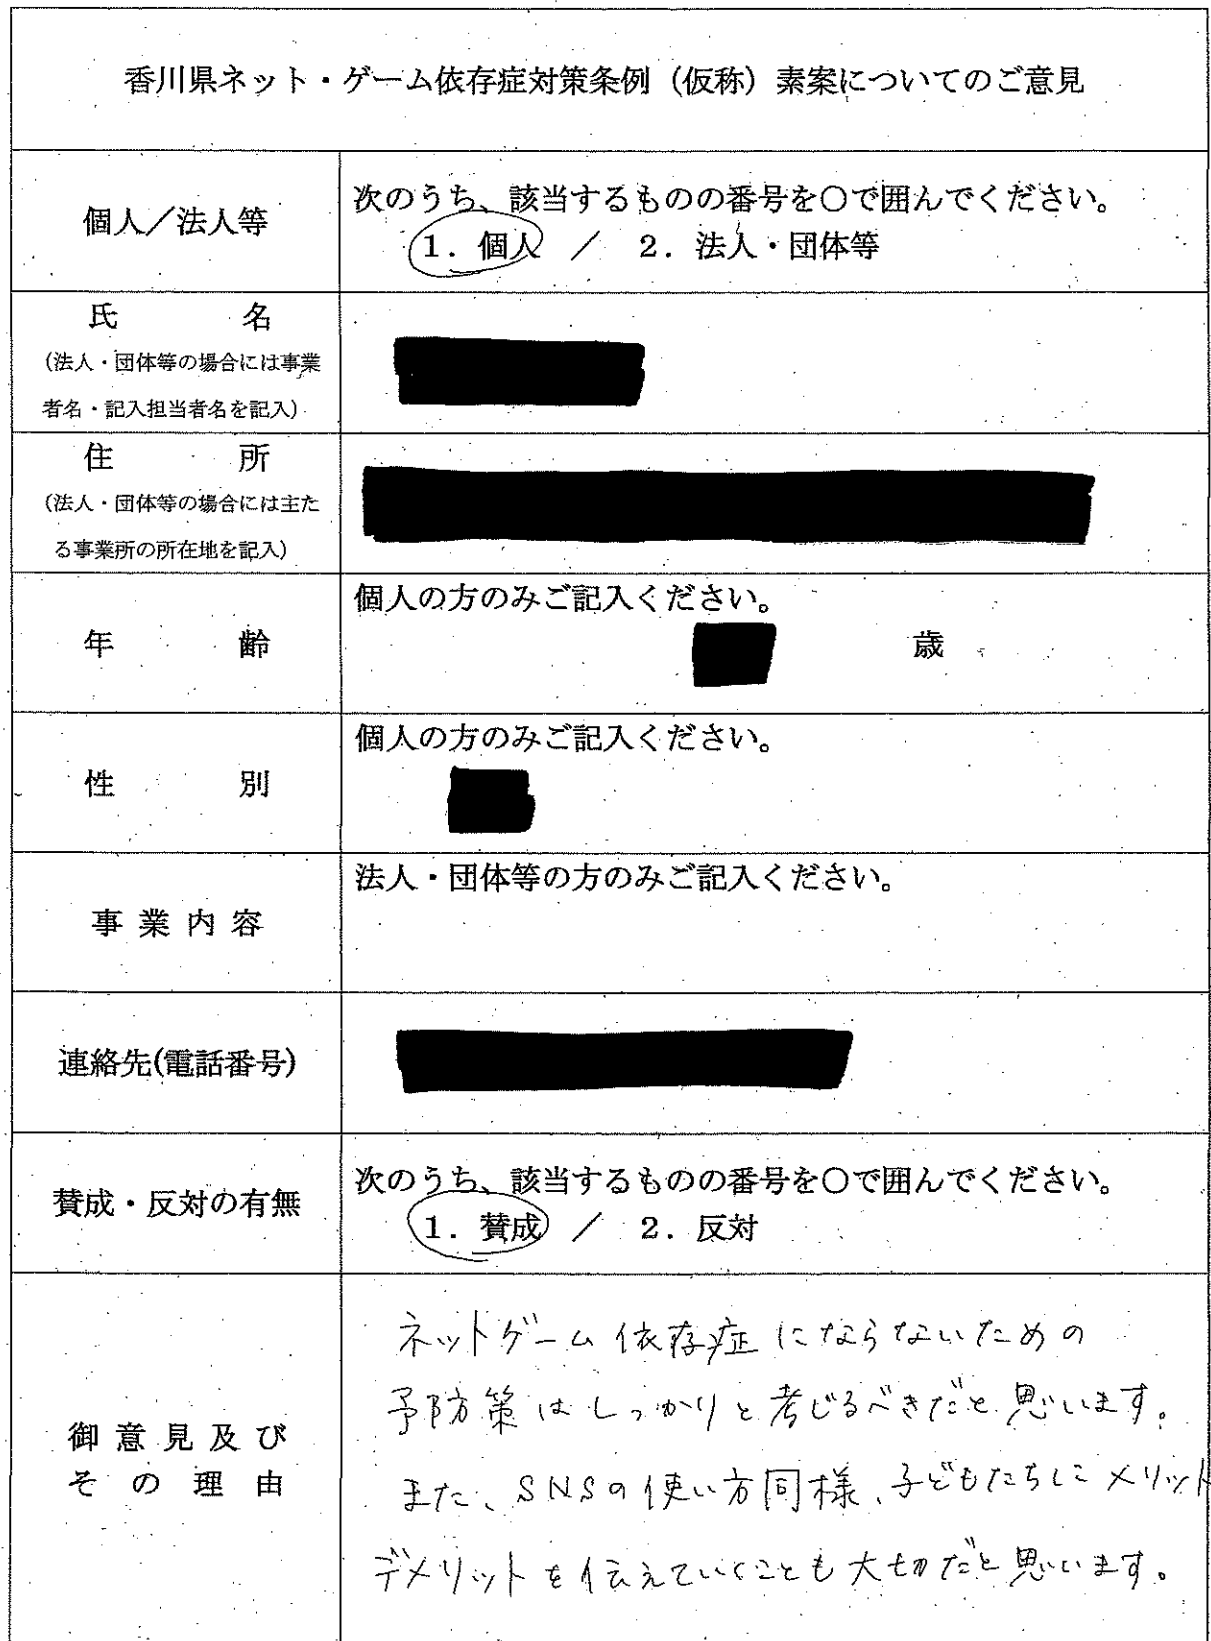 香川県ネット・ゲーム依存症対策条例（仮称）素案についてのご意見
個人／法人等
次のうち、該当するものの番号を○で囲んでください。
1．個人 ／ 2．法人・団体等
氏名
（法人・団体等の場合には事業
者名・記入担当者名を記入）
住所
（法人・団体等の場合には主た
る事業所の所在地を記入）
年齢
個人の方のみご記入ください。
歳
性別
個人の方のみご記入ください。
事業内容
法人・団体等の方のみご記入ください。
連絡先(電話番号)
賛成・反対の有無
次のうち、該当するものの番号を○で囲んでください。
1．賛成 ／ 2．反対
御意見及び
その理由
ネットゲーム依存症にならないための
予防策はしっかりと考じるべきだと思います。
また、SNSの使い方同様、子どもたちにメリット
デメリットを伝えていくことも大切だと思います。